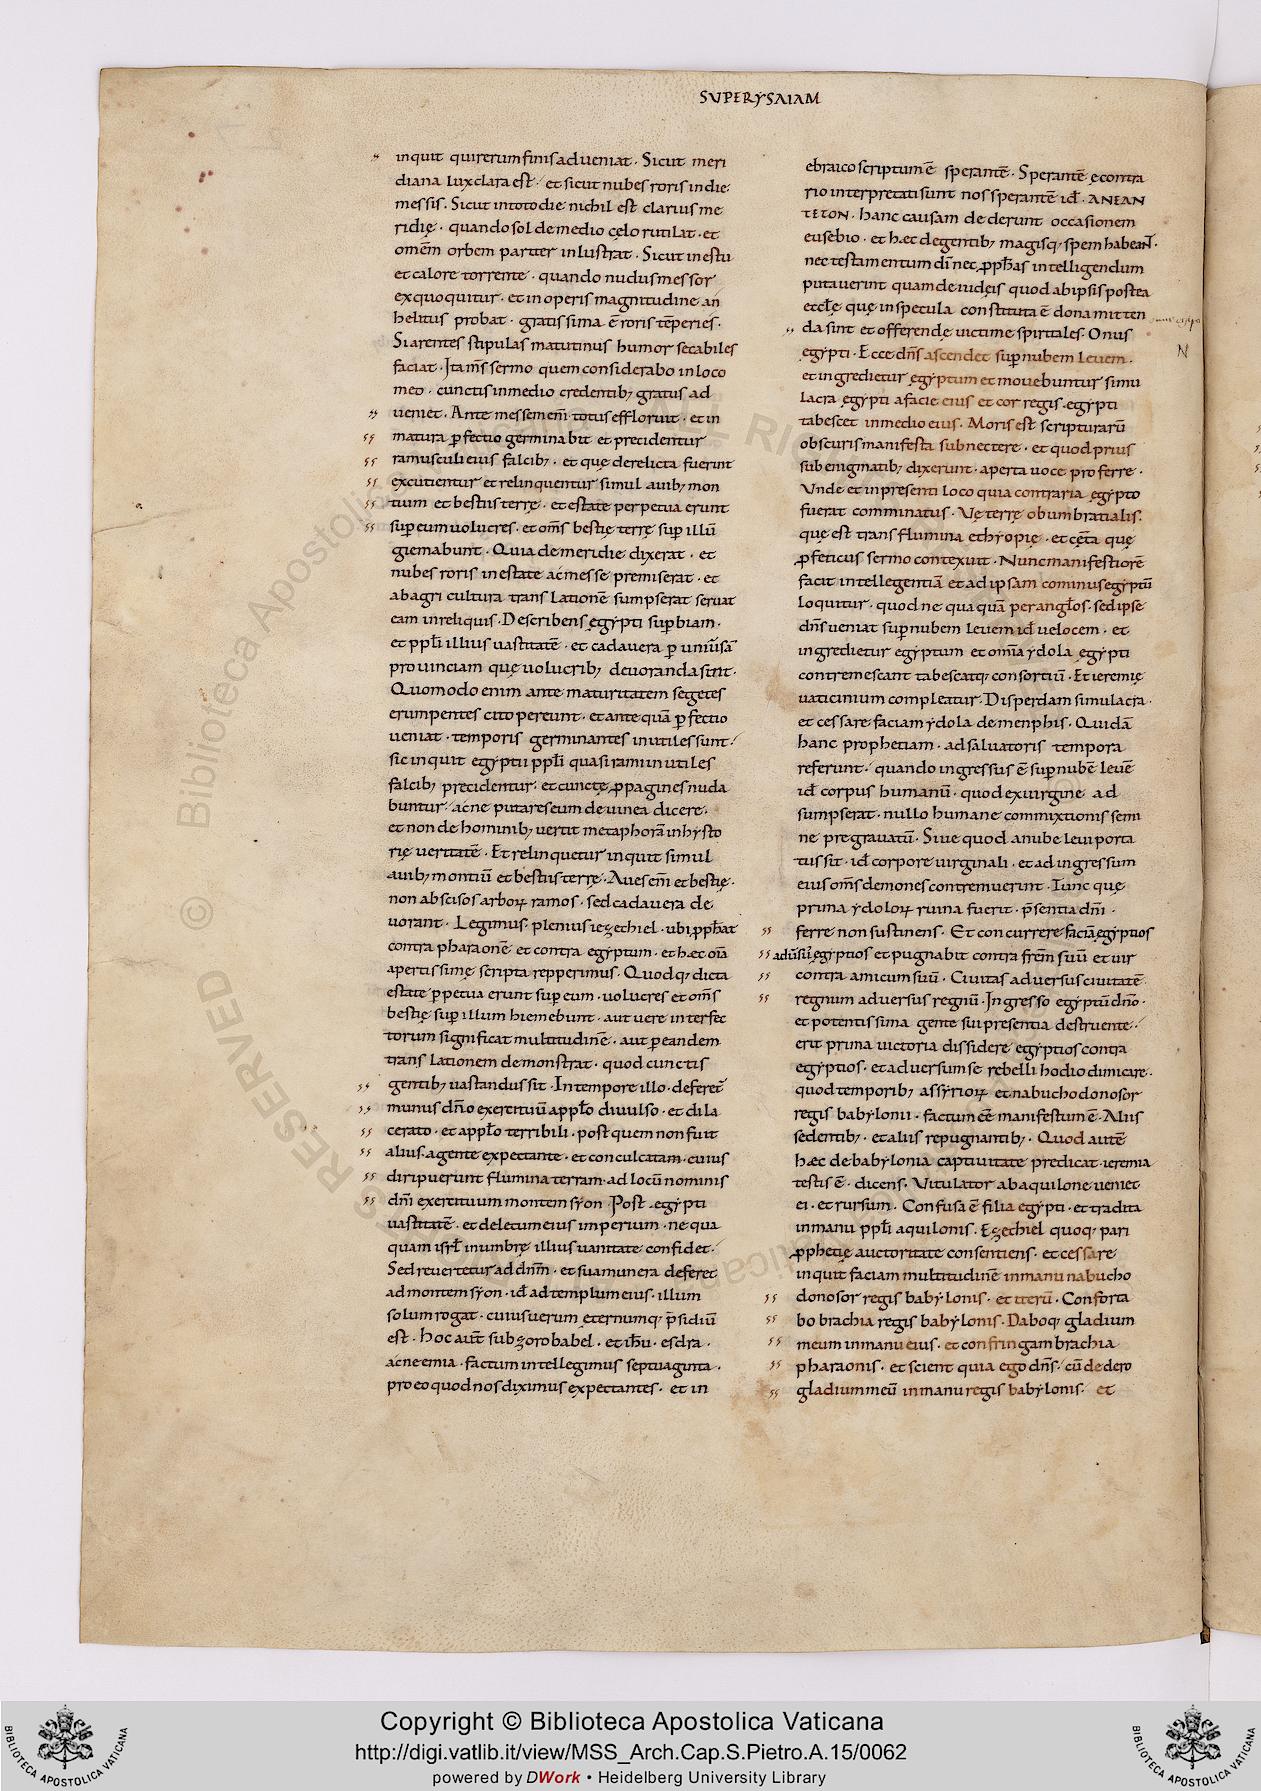 SUPER YSAIAM
inquit quirerum finis adveniat · Sicut meri
diana lux clara est · et sicut nubes roris in die
messis · Sicut in toto die nichil est clarius me
ridie · quando sol de medio cęlo rutilat · et
omēm orbem pariter inlustrat · Sicut in estu
et calore torrente · quando nudus messor
ex quo quitur · et in operis magnitudine an
helitus probat · gratissima ē roris tēperies ·
Si arentes stipulas matutinus humor secabiles
faciat · Ita mſ sermo quem considerabo in loco
meo · cunctis in medio credentib; gratus ad
veniet · Ante messem eni totus effloruit · et in
matura ꝑfectio germinabit et precidentur
ramusculi eius falcib; · et quę derelicta fuerint
excutientur et relinquentur simul avib; mon
tium et bestiis terrę · et estate perpetua erunt
suꝑ eum volucres · et om̄s bestię terrę suꝑ illū
giemabunt · Quia de meridie dixerat · et
nubes roris in estate ac messe premiserat · et
ab agri cultura translationē sumpserat servat
eam in reliquis · Describens ęgypti suꝑbiam ·
et ppłi illius vastitatē · et cadavera ꝑ univ̄sā
provinciam quę volucrib; devoranda sint ·
Quomodo enim ante maturitatem segetes
erumpentes cito pereunt · et ante quā ꝑfectio
veniat · temporis germinantes inutiles sunt ·
sic inquit egyptii ppłi quasi rami inutiles
falcib; precidentur · et cunctę ꝓpagines nuda
buntur · ac ne putares eum de vinea dicere ·
et non de hominib; vertit metaphorā in hysto
rię veritatē · Et relinquetur inquit simul
avib; montiū et bestiis terrę · Aves eni et bestię ·
non abscisos arborꝝ ramos · sed cadavera de
vorant · Legimus plenius iezechiel · ubi ꝓph̄at
contra pharaonē et contra egyptum · et hęc oīa
apertissimę scripta repperimus · Quodq; dicta
estate ꝑpetua erunt suꝑ eum · volucres et om̄s
bestię suꝑ illum hiemebunt · aut vere interfec
torum significat multitudinē · aut ꝑ eandem
translationem demonstrat · quod cunctis
gentib; vastandus sit · In tempore illo · deferet̄
munus dn̄o exercituū a ppło divulso · et dila
cerato · et a ppło terribili · post quem non fuit
alius · a gente expectante · et conculcatam · cuius
diripuerunt flumina terram · ad locū nominis
dn̄i exercituum montem syon · Post ęgypti
vastitatē · et deletum eius imperium · ne qua
quam isrł in umbrę illius vanitate confidet ·
Sed revertetur ad dn̄m · et sua munera deferet
ad montem syon · id̄ ad templum eius · illum
solum rogat · cuius verum ęternumq; p̄sidiū
est · Hoc aut̄ sub zorobabel · et ih̄u · esdra ·
ac neemia · factum intellegimus septuaginta ·
pro eo quod nos diximus expectantes · et in
ebraico scriptum ē sperantē · Sperantē ęcontra
rio interpretati sunt nos sperantē id̄ · ANEAN
TETON · hanc causam dederunt occasionem
eusebio · et hęc de gentib; magisq; spem habean̄t ·
nec testamentum dī nec ꝓph̄as intelligendum
putaverint quam de iudęis quod ab ipsis postea
eccłę quę in specula constituta ē dona mitten
da sint et offerendę victime spiritales · Onus
ęgypti · Ecce dn̄s ascendet suꝑ nubem levem ·
et ingredietur ęgyptum et movebuntur simu
lacra ęgypti a facie eius et cor regis ęgypti
tabescet in medio eius · Moris est scripturarū
obscuris manifesta subnectere · et quod prius
sub enigmatib; dixerunt · aperta voce proferre ·
Unde et in presenti loco quia contraria ęgypto
fuerat comminatus · Vę terrę obumbrati alis ·
quę est trans flumina ethyopię · et cęta quę
ꝓfeticus sermo contexuit · Nunc manifestiorē
facit intellegentiā et ad ipsam cominus egyptū
loquitur · quod nequaquā per angłos · sed ipse
dn̄s veniat suꝑ nubem levem id̄ velocem · et
ingredietur egyptum et omīa ydola ęgypti
contremescant tabescatq; consortiū · Et ieremię
vaticinium compleatur · Disperdam simulacra ·
et cessare faciam ydola de menphis · Quidā
hanc prophetiam · ad salvatoris tempora
referunt · quando ingressus ē suꝑ nubē levē
id̄ corpus humanū · quod ex virgine ad
sumpserat · nullo humane commixtionis semi
ne pregravatū · Sive quod a nube levi porta
tus sit · id̄ corpore virginali · et ad ingressum
eius om̄s demones contremuerint · Tunc quę
prima ydolorꝝ ruina fuerit · p̄sentia dn̄i ·
ferre non sustinens · Et concurrere faciā ęgyptios
adūsū ęgyptios et pugnabit contra frēm suū et vir
contra amicum suū · Civitas adversus civitatē
regnum adversus regnū · Ingresso egyptū dn̄o ·
et potentissima gente sui presentia destruente ·
erit prima victoria dissidere egyptios contra
egyptios · et adversum se rebelli hodio dimicare ·
quod temporib; assyriorꝝ et nabuchodonosor
regis babylonii · factum eē manifestum ē · Aliis
sedentib; · et aliis repugnantib; · Quod autē
hęc de babylonia captivitate predicat · ieremia
testis ē · dicens · Vitulator ab aquilone veniet
ei · et rursum · Confusa ē filia egypti · et tradita
in manu ppłi aquilonis · Ezechiel quoq; pari
ꝓphetię auctoritate consentiens · et cessare
inquit faciam multitudinē in manu nabucho
donosor regis babylonis · et iterū · Conforta
bo brachia regis babylonis · Daboq; gladium
meum in manu eius · et confringam brachia
pharaonis · et scient quia ego dn̄s · cū dedero
gladium meū in manu regis babylonis · et
N
© Biblioteca Apostolica Vaticana
RESERVED
Copyright © Biblioteca Apostolica Vaticana
http://digi.vatlib.it/view/MSS_Arch.Cap.S.Pietro.A.15/0062
powered by DWork • Heidelberg University Library
BIBLIOTECA APOSTOLICA VATICANA
BIBLIOTECA APOSTOLICA VATICANA